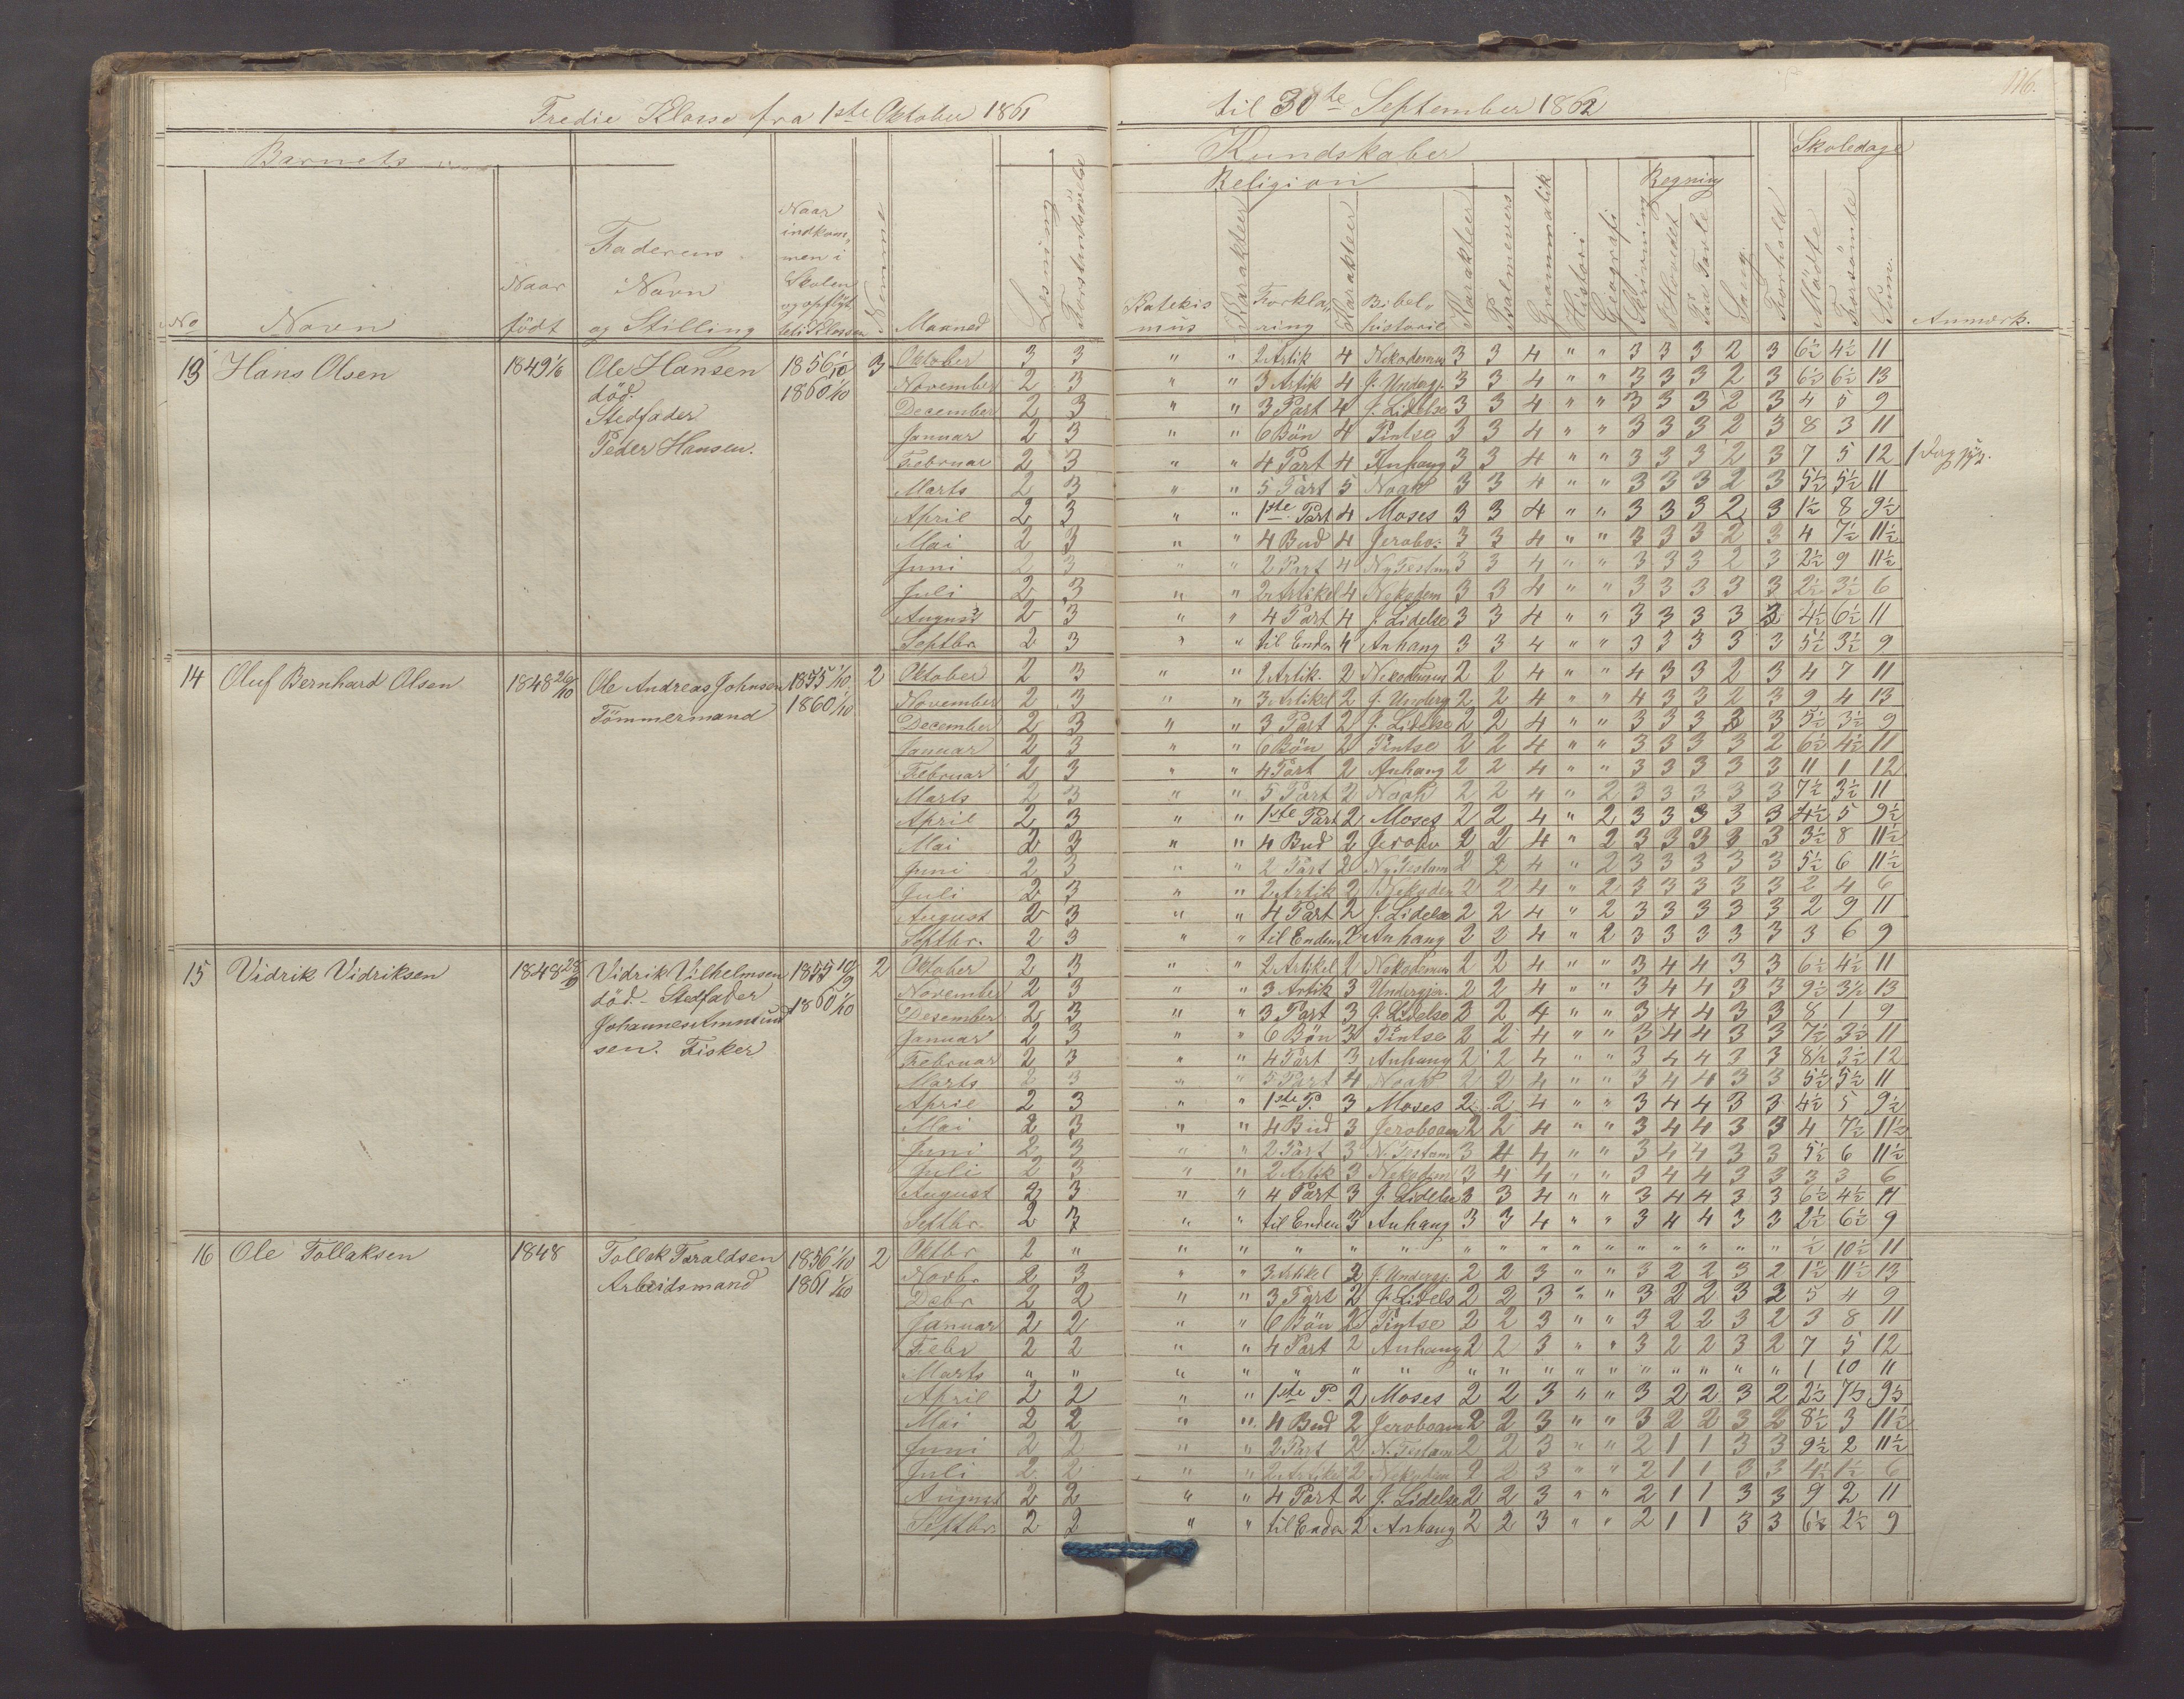 116.
Tredie Klasse fra 1ste Oktober 1861 til 30te September 1862
Barnets
Kundskaber
Skoledage
Religion
Regning
No
Navn
Naar født
Faderens Navn og Stilling
Naar indkommen i Skolen og opflyt. til Klassen
Nemme
Maaned
Læsning
Forstandsøvelse
Katekismus
Karakteer
Forklaring
Karakteer
Bibelhistorie
Karakteer
Psalmevers
Grammatik
Histori
Geografi
Skrivning
I Hovedet
Paa Tavle
Sang
Forhold
Mødte
Forsømte
Sum
Anmærk.
13 Hans Olsen 1849 1/6 Ole Hansen 1856 1/10 3 Oktober 3 3 " " 2 Artik 4 Nekodemus 3 3 4 " " 3 3 3 2 3 6½ 4½ 11
död. 1860 1/10 November 2 3 " " 3 Artik 4 J. Undergj. 3 3 4 " " 3 3 3 2 3 6½ 6½ 13
Stedfader December 2 3 " " 3 Part 4 J. Lidelse 3 3 4 " " 3 3 3 2 3 4 5 9
Peder Hansen. Januar 2 3 " " 6 Bön 4 Pintse 3 3 4 " " 3 3 3 2 3 8 3 11
Februar 2 3 " " 4 Part 4 Anhang 3 3 4 " " 3 3 3 2 3 7 5 12 1 Dag
Marts 2 3 " " 5 Part 5 Noah 3 3 4 " " 3 3 3 2 3 5½ 5½ 11
April 2 3 " " 1ste Part 4 Moses 3 3 4 " " 3 3 3 2 3 1½ 8 9½
Mai 2 3 " " 4 Bud 4 Jerobo: 3 3 4 " " 3 3 3 2 3 4 7½ 11½
Juni 2 3 " " 2 Part 4 Ny Testam 3 3 4 " " 3 3 3 2 3 2½ 9 11½
Juli 2 3 " " 2 Artikel 4 Nekodem 3 3 4 " " 3 3 3 3 3 2½ 3½ 6
August 2 3 " " 4 Part 4 J. Lidelse 3 3 4 " " 3 3 3 3 3 4½ 6½ 11
Septbr. 2 3 " " til Enden 4 Anhang 3 3 4 " " 3 3 3 3 3 5½ 3½ 9
14 Oluf Bernhard Olsen 1848 26/10 Ole Andreas Johnsen 1855 1/10 2 Oktober 2 3 " " 2 Artik. 2 Nekodemus 2 2 4 " " 4 3 3 2 3 4 7 11
Tömmermand 1860 1/10 November 2 3 " " 3 Artikel 2 J. Underg 2 2 4 " " 4 3 3 2 3 9 4 13
December 2 3 " " 3 Part 2 J. Lidelse 2 2 4 " " 3 3 3 3 3 5½ 3½ 9
Januar 2 3 " " 6 Bön 2 Pintse 2 2 4 " " 3 3 3 3 2 6½ 4½ 11
Februar 2 3 " " 4 Part 2 Anhang 2 2 4 " " 3 3 3 3 3 11 1 12
Marts 2 3 " " 5 Part 2 Noah 2 2 4 " 2 3 3 3 3 3 7½ 3½ 11
April 2 3 " " 1ste Part 2 Moses 2 2 4 " 2 3 3 3 3 3 4½ 5 9½
Mai 2 3 " " 4 Bud 2 Jerobo 2 2 4 " 2 3 3 3 3 3 3½ 8 11½
Juni 2 3 " " 2 Part 2 Ny Testam 2 2 4 " 2 3 3 3 3 3 5½ 6 11½
Juli 2 3 " " 2 Artik 2 Nekodem 2 2 4 " 2 3 3 3 3 3 2 4 6
August 2 3 " " 4 Part 2 J. Lidelse 2 2 4 " 2 3 3 3 3 3 2 9 11
Septbr. 2 3 " " til Enden 2 Anhang 2 2 4 " 2 3 3 3 3 3 3 6 9
15 Vidrik Vidriksen 1848 23/9 Vidrik Vilhelmsen 1855 10/9 2 Oktober 2 3 " " 2 Artikel 2 Nekodemus 2 2 4 " " 3 4 4 3 3 6½ 4½ 11
död. - Stedfader 1860 1/10 November 2 3 " " 3 Artik 3 Undergjer. 2 2 4 " " 3 4 4 3 3 9½ 3½ 13
Johannes Ammund Desember 2 3 " " 3 Part 3 J. Lidelse 2 2 4 " " 3 4 4 3 3 8 1 9
sen. Fisker Januar 2 3 " " 6 Bön 3 Pintse 2 2 4 " " 3 4 4 3 3 7½ 3½ 11
Februar 2 3 " " 4 Part 3 Anhang 2 2 4 " " 3 4 4 3 3 8½ 3½ 12
Marts 2 3 " " 5 Part 4 Noah 2 2 4 " " 3 4 4 3 3 5½ 5½ 11
April 2 3 " " 1ste P. 3 Moses 2 2 4 " " 3 4 4 3 3 4½ 5 9½
Mai 2 3 " " 4 Bud 3 Jeroboam 2 2 4 " " 3 4 4 3 3 4 7½ 11½
Juni 2 3 " " 2 Part 3 N. Testam 3 4 4 " " 3 4 4 3 3 5½ 6 11½
Juli 2 3 " " 2 Artik 3 Nekodem 3 4 4 " " 3 4 4 3 3 3 3 6
August 2 3 " " 4 Part 3 J. Lidelse 3 3 4 " " 3 4 4 3 3 6½ 4½ 11
Septbr. 2 3 " " til Enden 3 Anhang 3 3 4 " " 3 4 4 3 3 2½ 6½ 9
16 Ole Tollaksen 1848 Tollak Taraldsen 1856 1/10 2 Oktbr 2 " " " " " " " " " " " " " " " " ½ 10½ 11
Arbeidsmand 1861 1/10 Novbr 2 3 " " 3 Artikel 2 J. Undergj. 2 2 3 " " 3 2 2 3 2 1½ 11½ 13
Debr 2 2 " " 3 Part 2 J. Lidels 2 2 3 " " 3 2 2 3 2 5 4 9
Januar 2 2 " " 6 Bön 2 Pintse 2 2 3 " " 3 2 2 3 2 3 8 11
Febr 2 2 " " 4 Part 2 Anhang 2 2 3 " " 3 2 2 3 2 7 5 12
Marts " " " " " " " " " " " " " " " " " 1 10 11
April 2 2 " " 1ste P. 2 Moses 2 2 3 " " 3 2 2 3 2 2½ 7½ 9½
Mai 2 2 " " 4 Bud 2 Jeroboam 2 2 3 " " 3 2 2 3 2 8½ 3 11½
Juni 2 2 " " 2 Part 2 N. Testam 2 2 3 " " 2 1 1 3 3 9½ 2 11½
Juli 2 2 " " 2 Artikel 2 Nekodem 2 2 3 " " 2 1 1 3 3 4½ 1½ 6
August 2 2 " " 4 Part 2 J. Lidelse 2 2 3 " " 2 1 1 3 3 9 2 11
Septbr 2 2 " " til Enden 2 Anhang 2 2 3 " " 2 1 1 3 3 6½ 2½ 9